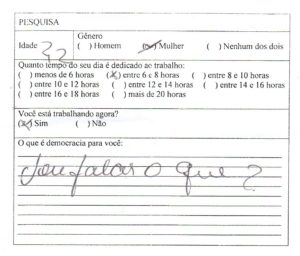 PESQUISA
Idade 32
Gênero
( ) Homem (x) Mulher ( ) Nenhum dos dois
Quanto tempo do seu dia é dedicado ao trabalho:
( ) menos de 6 horas (x) entre 6 e 8 horas ( ) entre 8 e 10 horas
( ) entre 10 e 12 horas ( ) entre 12 e 14 horas ( ) entre 14 e 16 horas
( ) entre 16 e 18 horas ( ) mais de 20 horas
Você está trabalhando agora?
(x) Sim ( ) Não
O que é democracia para você:
falar o que ?